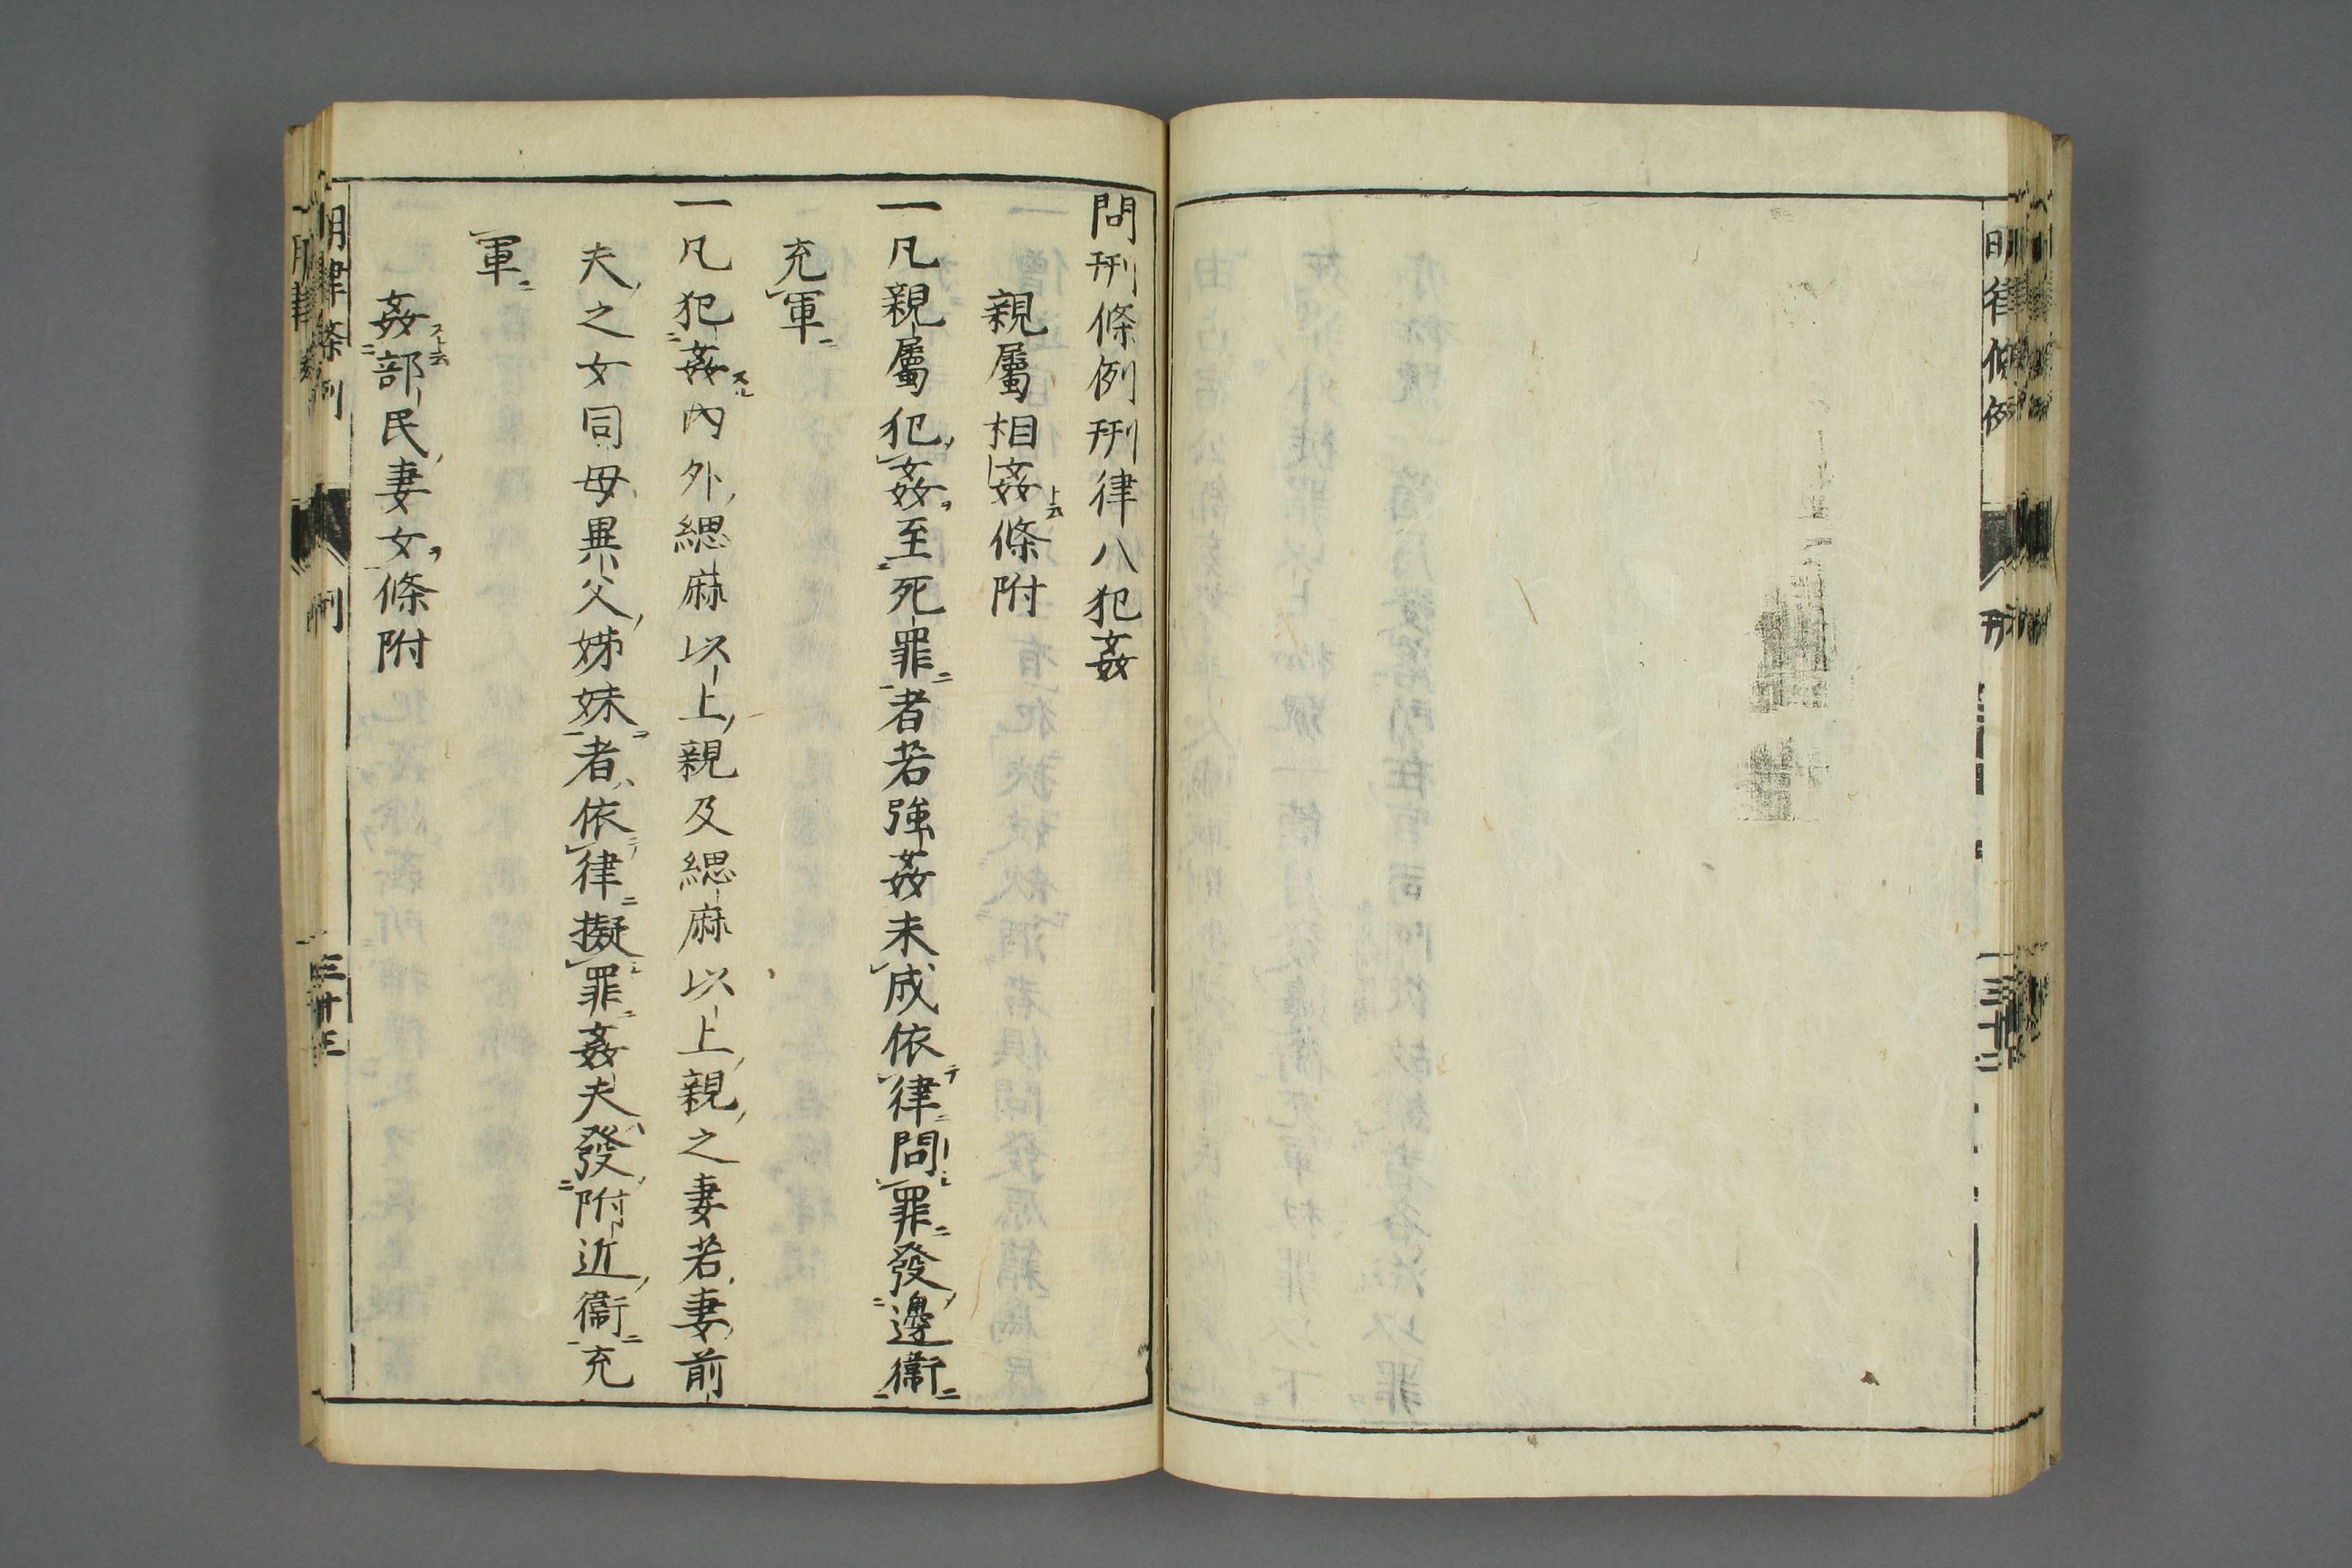 問刑條例刑律八犯姦
親屬相姦條附
一凡親屬犯姦至死罪者若強姦未成依律問罪發邊衞
充軍
一凡犯姦內外緦麻以上親及緦麻以上親之妻若妻前
夫之女同母異父姊妹者依律擬罪姦夫發附近衞充
軍
姦部民妻女條附
明律條例
刑
三十三